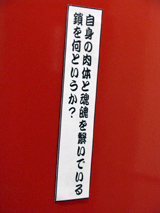 自身の肉体と魂魄を繋いでいる
鎖を何というか？